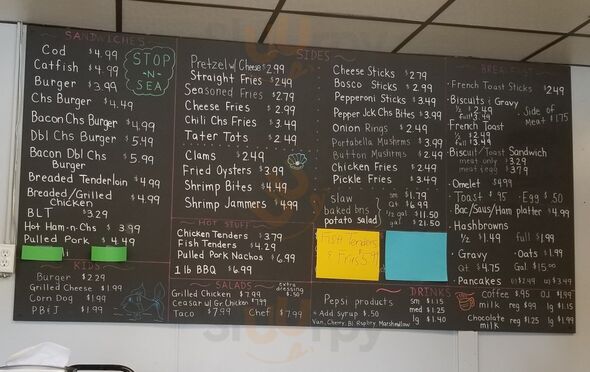 SANDWICHES
Cod $4.99
Catfish $4.99
Burger $3.99
Chs Burger $4.49
Bacon Chs Burger $4.99
Dbl Chs Burger $5.49
Bacon Dbl Chs $5.99
Burger
Breaded Tenderloin $4.99
Breaded/Grilled $4.99
Chicken
BLT $3.29
Hot Ham-n-Chs $3.99
Pulled Pork $4.49
STOP
-N-
SEA
KIDS
Burger $2.29
Grilled Cheese $1.99
Corn Dog $1.99
PB&J $1.99
SIDES
Pretzel w/ Cheese $2.99
Straight Fries $2.49
Seasoned Fries $2.79
Cheese Fries $2.99
Chili Chs Fries $3.49
Tater Tots $2.49
Clams $2.49
Fried Oysters $3.99
Shrimp Bites $4.49
Shrimp Jammers $4.99
HOT STUFF
Chicken Tenders $3.79
Fish Tenders $4.29
Pulled Pork Nachos $6.99
1 lb BBQ $6.99
SALADS
extra
dressing
$.50
Grilled Chicken $7.99
Ceasar w/ Gr. Chicken $7.99
Taco $7.99 Chef $7.99
Cheese Sticks $2.79
Bosco Sticks $2.99
Pepperoni Sticks $3.49
Pepper Jck Chs Bites $3.99
Onion Rings $2.49
Portabella Mushrms $3.99
Button Mushrms $2.49
Chicken Fries $2.49
Pickle Fries $3.49
slaw
baked bns
potato salad
sm $1.79
qt $6.99
1/2 gal $11.50
gal $21.50
Fish Tenders
& Fries
DRINKS
Pepsi products
sm $1.15
med $1.25
lg $1.40
+ Add syrup $.50
Van, Cherry, Bl. Rspbry, Marshmallow
coffee $.95 OJ $1.99
milk reg $.99 lg $1.15
Chocolate
milk reg $1.25 lg $1.99
BREAKFAST
· French Toast Sticks $2.49
· Biscuits & Gravy
1/2 $2.49
full $3.49
· Side of
Meat $1.75
· French Toast
1/2 $2.49
full $3.49
· Biscuit/Toast Sandwich
meat only $3.29
meat & egg $3.79
· Omelet $4.99
· Toast $.95 · Egg $.50
· Bac/Saus/Ham platter $4.99
· Hashbrowns
1/2 $1.49 full $1.99
· Gravy · Oats $1.99
qt $4.75 Gal $15.00
· Pancakes (2) $2.49 (3) $3.49